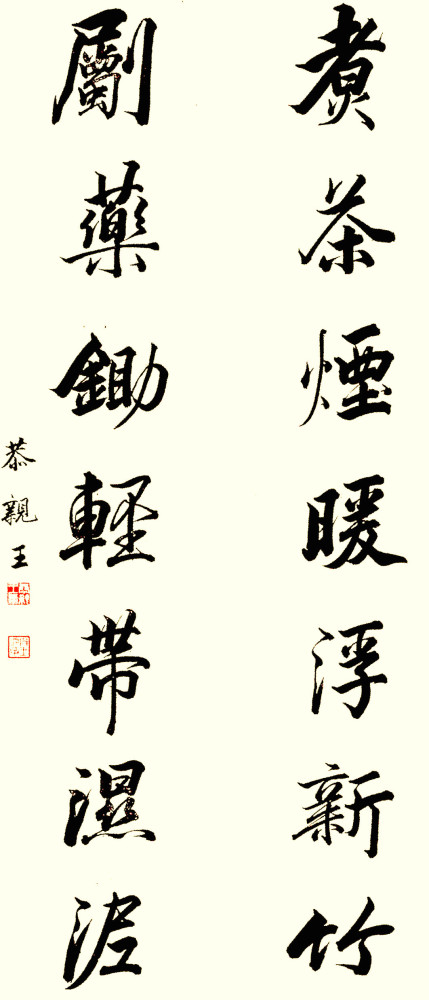 煑茶煙暖浮新竹
劚藥鋤輕帶濕泥
恭親王